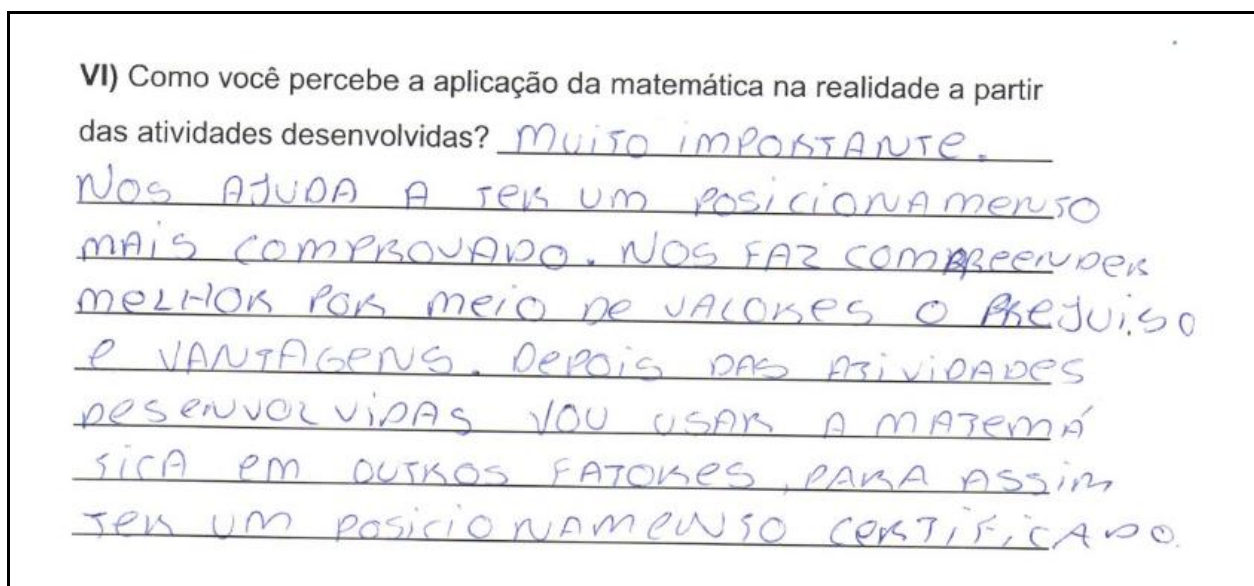 VI) Como você percebe a aplicação da matemática na realidade a partir
das atividades desenvolvidas? MUITO IMPORTANTE.
NOS AJUDA A TER UM POSICIONAMENTO
MAIS COMPROVADO. NOS FAZ COMPREENDER
MELHOR POR MEIO DE VALORES O PREJUISO
E VANTAGENS. DEPOIS DAS ATIVIDADES
DESENVOLVIDAS VOU USAR A MATEMÁ
TICA EM OUTROS FATORES, PARA ASSIM
TER UM POSICIONAMENTO CERTIFICADO.